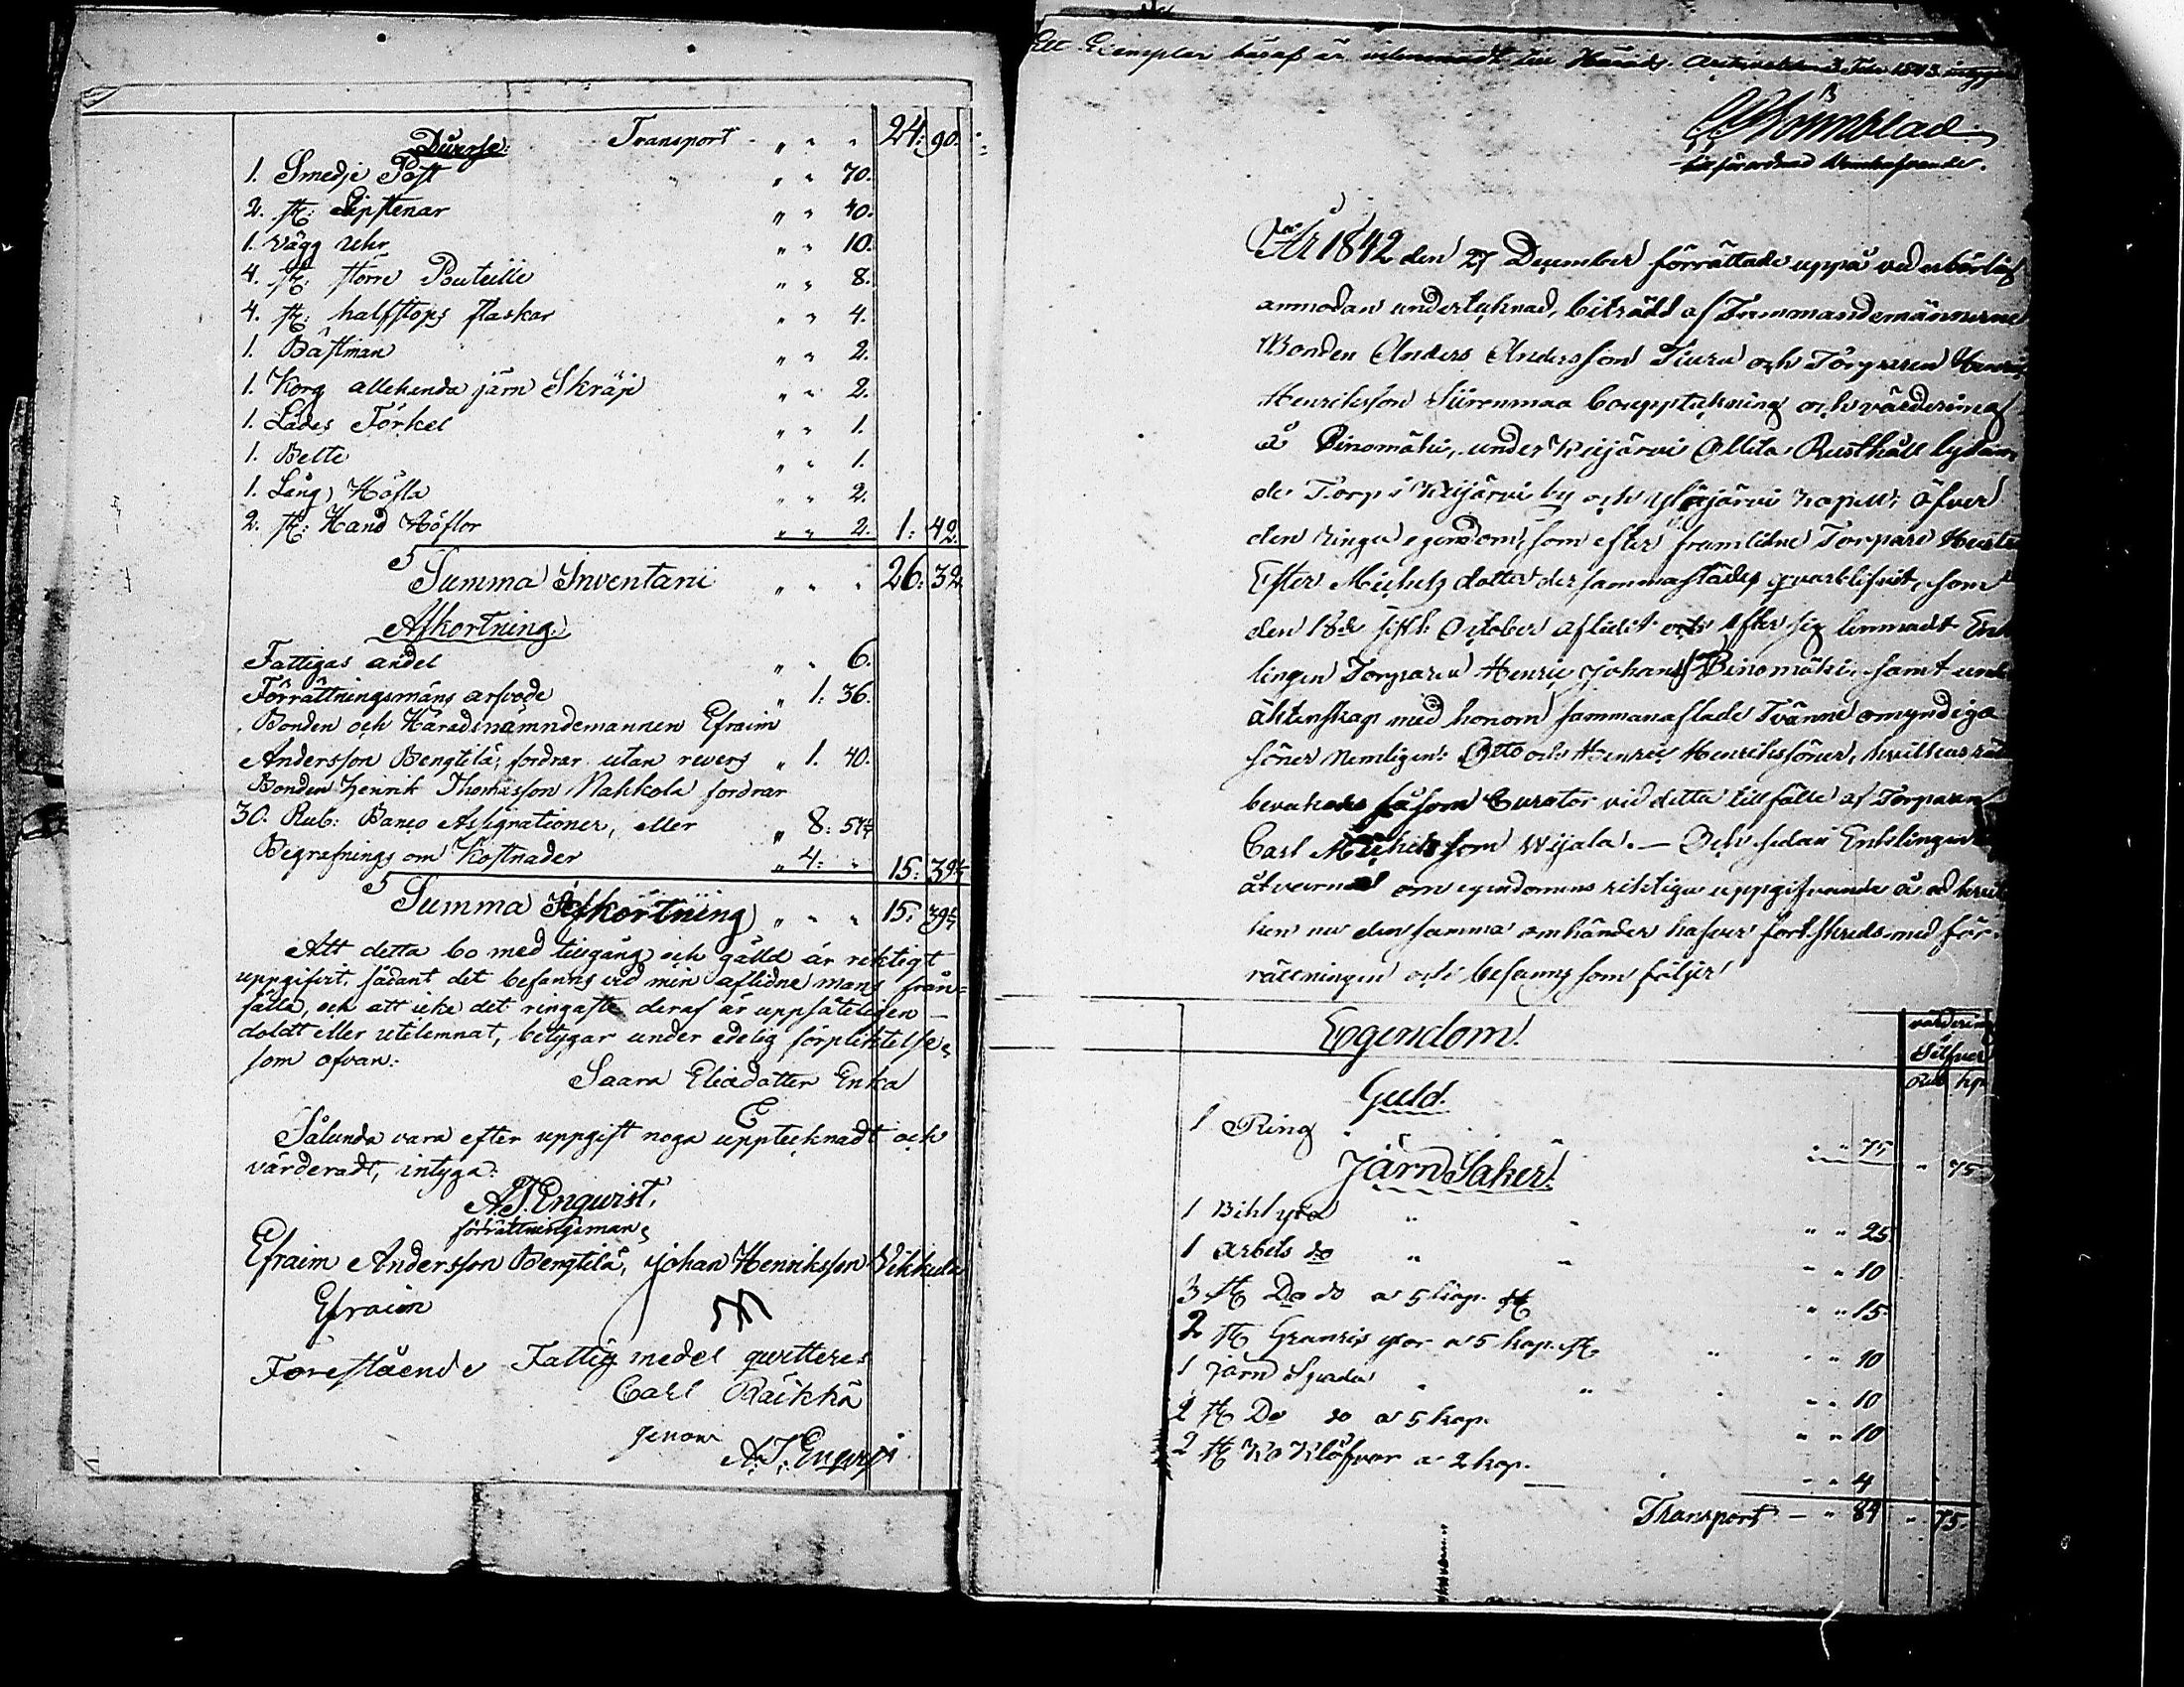 Diverse: Transport " " " 24: 90.
1. Smedje Päst " " 70.
2. st: Lipstenar " " 40.
1. vägg Uhr " " 10.
4. st: större Bouteille " " 8.
4. st: halfstops flaskor " " 4.
1. Båssman " " 2.
1. Korg allehanda järn Skräp " " 2.
1. Lådes Törkel " " 1.
1. Bette " " 1.
1. Lång Höfla " " 2.
2. st: Hand Höflor " " 2. 1: 42.
Summa Inventarii " " " 26: 32
Afkortning:
Fattigas andel " " 6.
Förrättningsmans arfvode " 1: 36.
Bonden och Häradsnämndemannen Efraim
Andersson Bengtilä, fordrar utan revers " 1. 40.
Bonden Henrik Thomasson Nahkola fordrar
30. Rub: Banco Assignationer, eller " 8: 57 1/7
Begrafnings om Kostnader " 4: " 15: 39 1/7
Summa Afkortning " " " 15: 39 1/7
Att detta bo med tillgång och gälld är riktigt
uppgifvit, sådant det befanns vid min aflidne mans från=
fälle, och att icke det ringaste deraf är uppsåteligen
doldt eller utelemnat, betygar under edelig förpliktelse,
som ofvan:
Saara Eliædotter Enka
Sålunda vara efter uppgift noga upptecknadt och
värderadt, intyga:
A. J. Enqvist,
förrättningsman,
Efraim Andersson Bengtilä, Johan Henriksson Vikkula
Efraim
Förestående Fattig medel qvitteres
Carl Räikkä
genom
A: J: Enqvist
Ett Exemplar häraf är inlemnadt till Härads 1843
till förordnad
År 1842 den 27 December förrättade uppå vederbörlig
anmodan undertecknad, biträdd af
Bonden Anders Andersson Tiura och Torparen Henric
Henriksson Siirenmaa bouppteckning och värdering
å Binomäki, under Keijärvi Ollila Rusthåll lydan
de Torp i Keijärvi by och Ylöjärvi Kapell; öfver
den ringa egendom, som efter framlidne Torpare Hustru
Esther Michels dotter der sammastädes qvarblifvit, som
den 18de sistl: October aflidit och efter sig lemnadt Enk
lingen Torparen Henric Johansson Binomäki, samt
äktenskap med honom sammanaflade Tvänne omyndiga
söner Nemligen: Otto och Henric Henrikssöner, hvilkas rätt
bevakades såsom Curator vid detta tillfälle af Torparen
Carl Michelsson Wijala. — Och sedan Enklingen
åtvarnad om egendomens riktiga uppgifvande å ed hvil
ken nu densamma omhänder hafver fortskreds med för
rättningen och befanns som följer
Egendom! värdering
Silfver
Rub kop
Guld.
1 Ring " " 75 " 75
Järn Saker:
1 Bihl yxa " " 25
1 arbets do " " 10
3 st Do do a 5 kop. st " " 15
2 st Granris yxor a 5 kop. st. " " 10
1 Järn Spada " " 10
2 st Do do a 5 kop. " " 10
2 st Ko Klöfvar a 2 kop. " " 4
Transport — " 84 " 75.